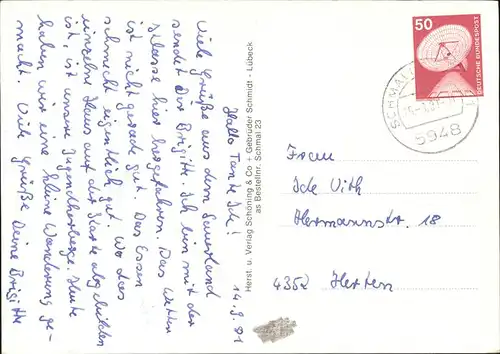 14.9.81
Hallo Tante Ilse!
Viele Grüße aus dem Sauerland
sendet Dir Brigitte. Ich bin mit der
Klasse hier hingefahren. Das Wetter
ist nicht gerade gut. Das Essen
schmeckt eigentlich gut. Wo das
einzelne Haus auf der Karte abgebildet
ist, ist unsere Jugendherberge. Heute
haben wir eine kleine Wanderung ge-
macht. Viele Grüße Deine Brigitte
Herst. u. Verlag Schöning & Co + Gebrüder Schmidt - Lübeck
as Bestellnr. Schmal 23
50
DEUTSCHE BUNDESPOST
5948
Frau
Ilse Vith
Hermannstr. 18
4352 Herten